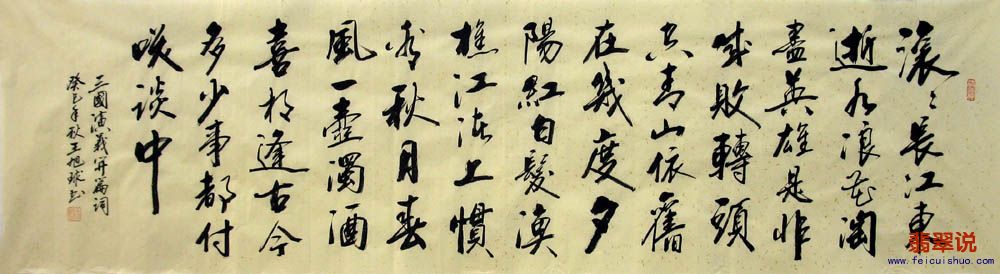 滾〻長江東
逝水浪花淘
盡英雄是非
成敗轉頭
空青山依舊
在幾度夕
陽紅白髮漁
樵江渚上慣
看秋月春
風一壺濁酒
喜相逢古今
多少事都付
咲談中
三國演義開篇詞
癸巳年秋王旭球書
翡翠说
www.feicuishuo.com